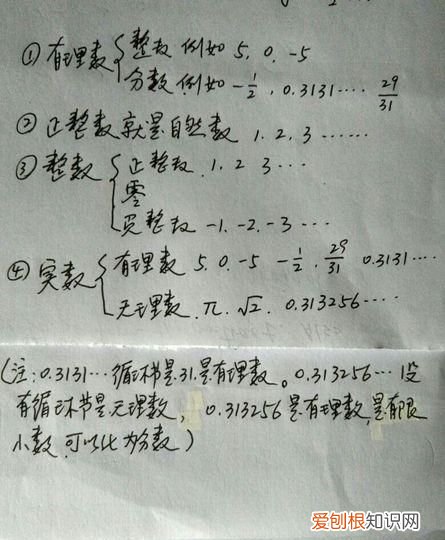 ① 有理数 { 整数 例如 5, 0, -5
分数 例如 -1/2, 0.3131···· 29/31
② 正整数就是自然数 1, 2, 3 ······
③ 整数 { 正整数 1, 2 3 ···
零
负整数 -1, -2, -3 ···
④ 实数 { 有理数 5, 0, -5 -1/2, 29/31 0.3131····
无理数, π, √2, 0.313256····
(注: 0.3131··· 循环节是31,是有理数。0.313256··· 没
有循环节是无理数, 0.313256是有理数,是有限
小数,可以化为分数)
爱刨根知识网